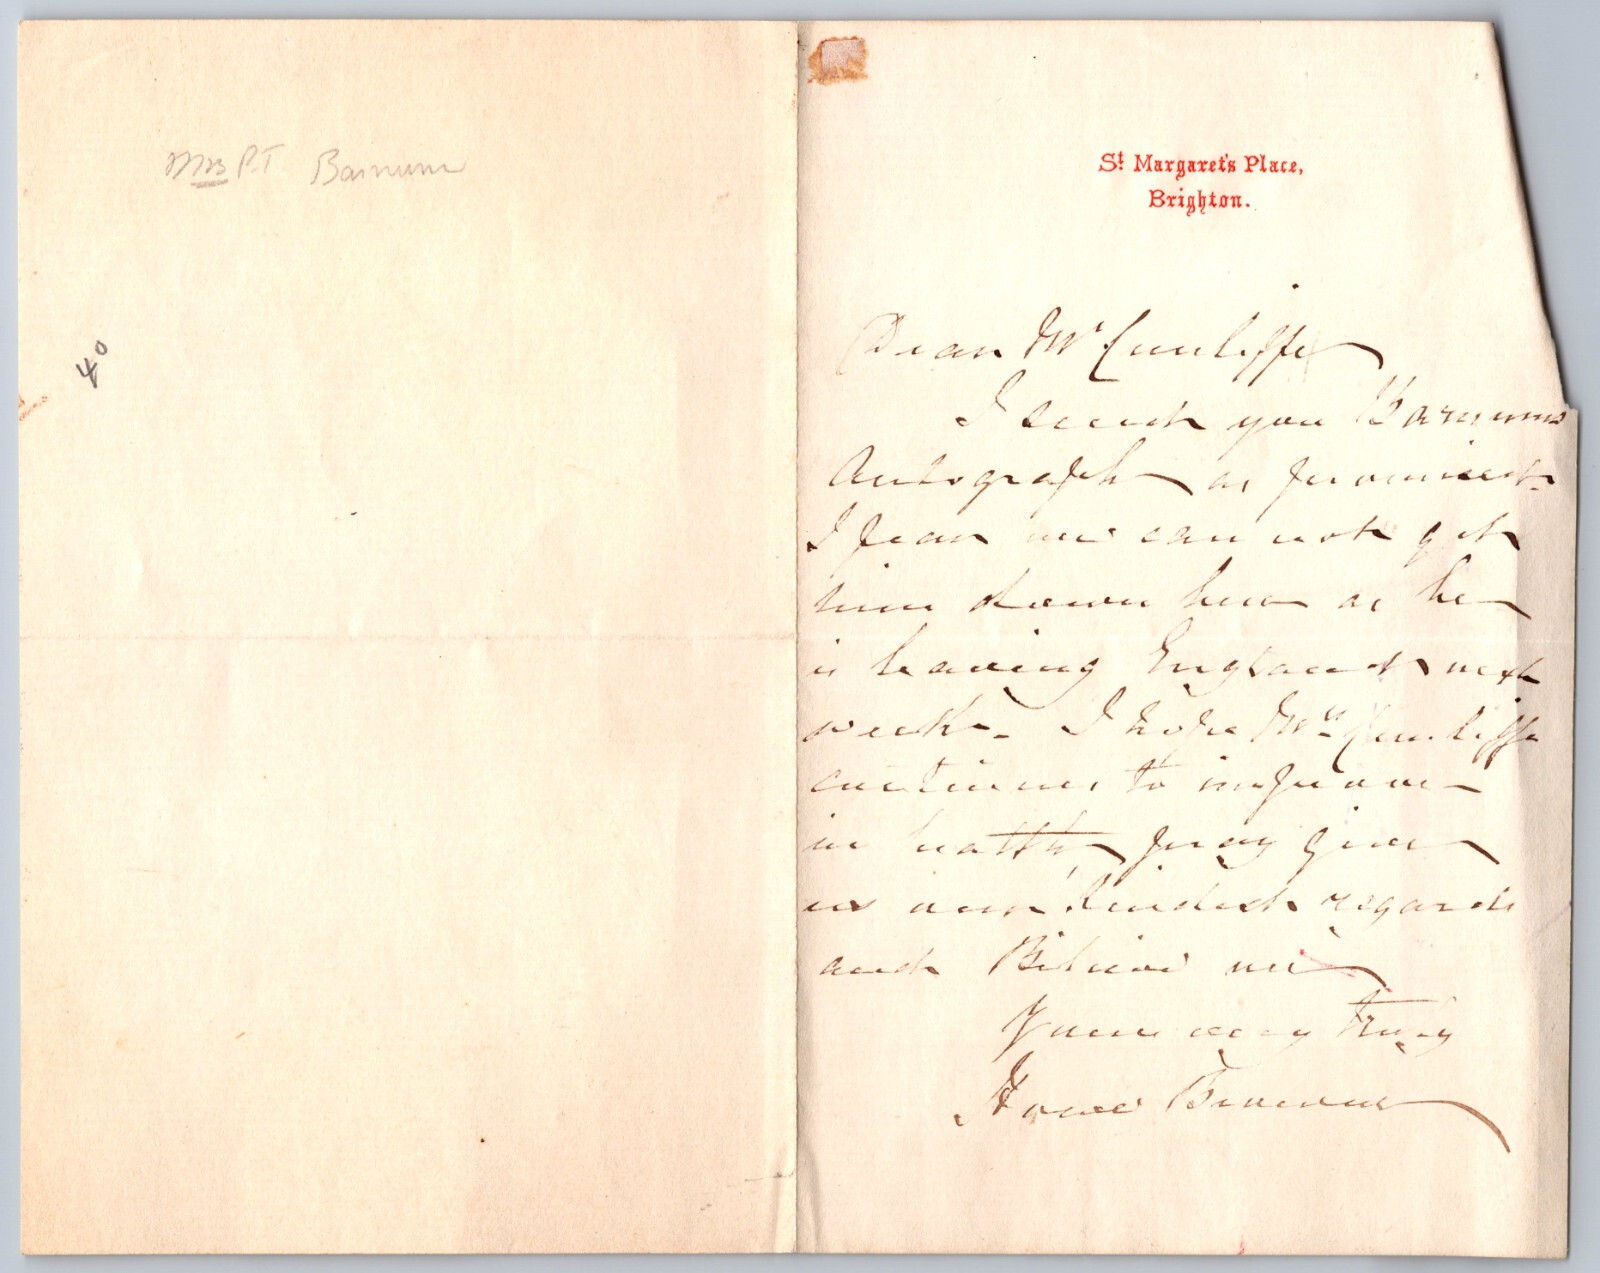 Mrs P.T Barnum
40
St Margaret's Place,
Brighton.
Dear Mr Cunliffe
I send you Barnums
Autograph as promised.
I fear we can not get
him down here as he
is leaving England next
week. I hope Mrs Cunliffe
continues to improve
in health, pray give
our kindest regards
and Believe me
Yours very truly